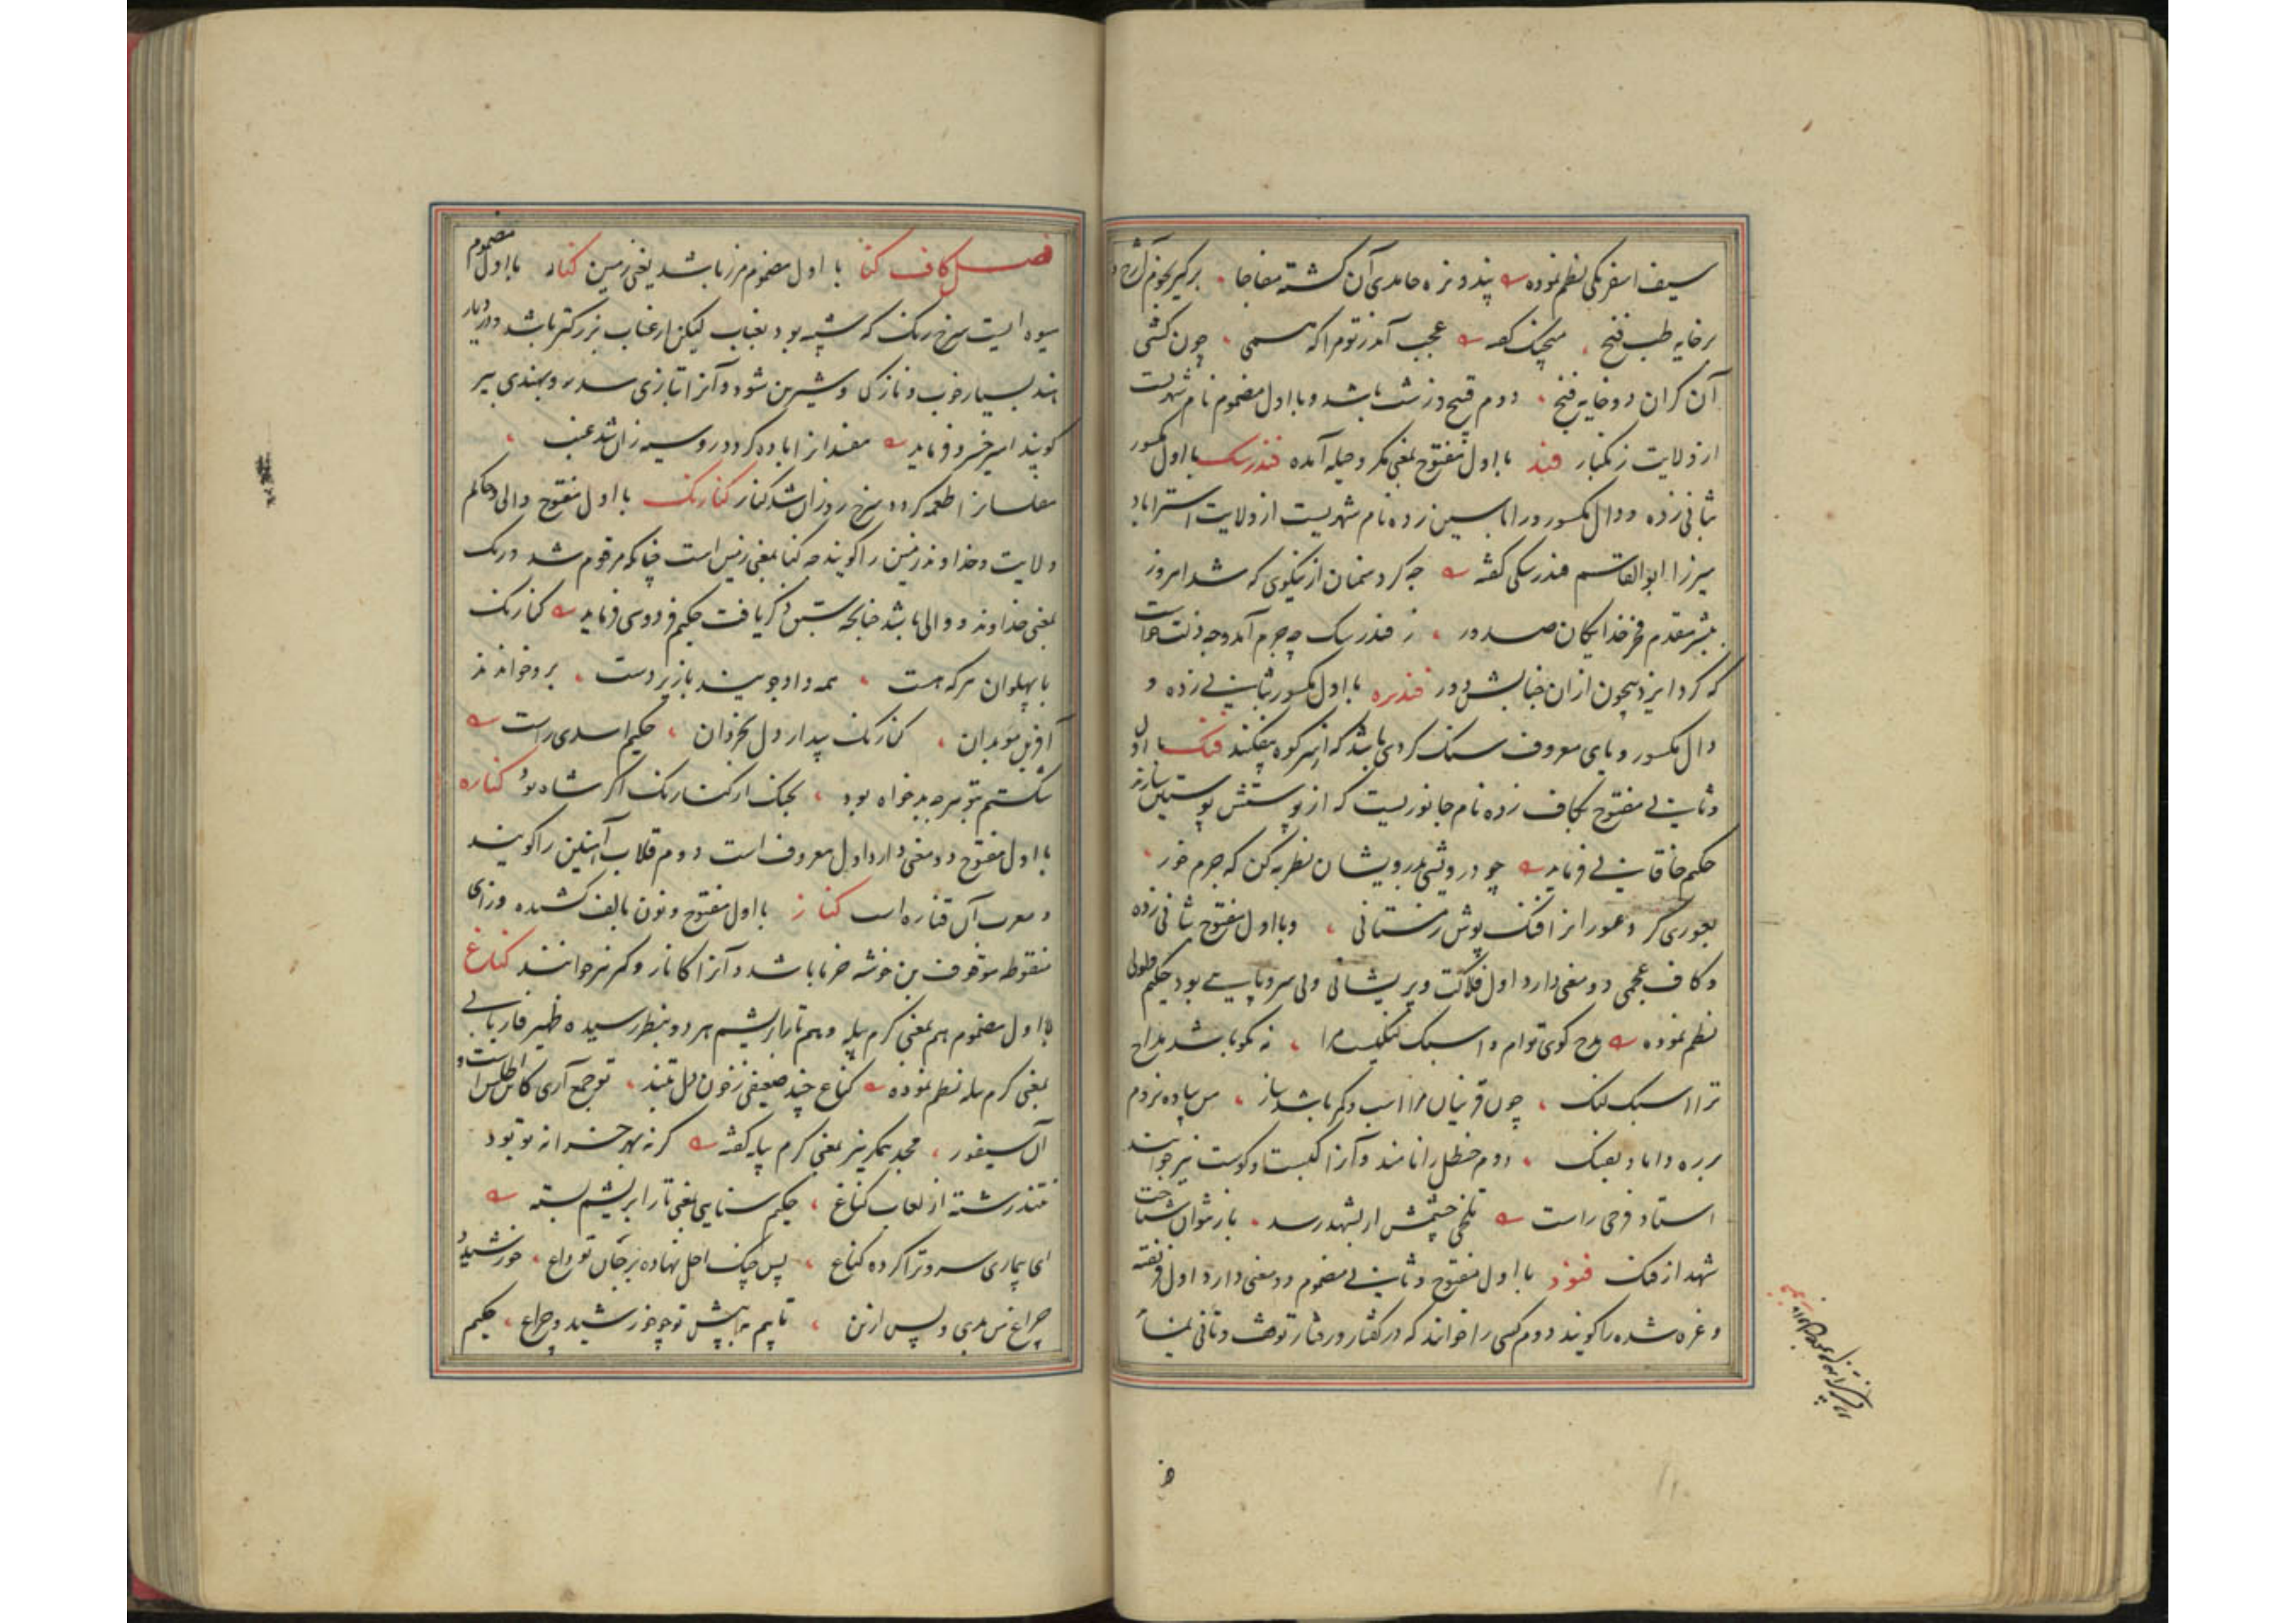 سیف اسفرنکی نظم نموده پند و نره حامدی آن کشته مفاجا برکیر بخوم آن رخ و
برخایه طب فنخ منجیک کفه عجب آمد ز تو مرا که همی چون کشی
آن کران دو خایه فنخ دوم قبیح و زشت باشد و با اول مضموم نام شهریست
از ولایت زنکبار فند با اول مفتوح بمعنی مکر و حیله آمده فندرسک با اول مکسور
بثانی زده و دال مکسور و را با سین زده نام شهریست از ولایت استراباد
میرزا ابوالقاسم فندرسکی کفته چه کرد سخنان از نیکوی که شد امروز
بشر مقدم فخر خدایکان صدور ز فندرسک چه جرم آمد و چه ذلت خاست
که کرد ایزد بیچون از ان خبابش دور فندیره با اول مکسور بثانی زده و
دال مکسور و یای معروف سنک کردی باشد که از سر کوه بیفکنند فنک با اول
و ثانی مفتوح بکاف زده نام جانوریست که از پوستش پوستین سازند
حکیم خاقانی فرماید چو درویشی بدرویشان نظر به کن که جرم خور
بعوری کر دعور انرا فنک پوش زمستانی و با اول مفتوح بثانی زده
و کاف عجمی دو معنی دارد اول فلاکت و پریشانی و بی سر و پایی بود حکیم
نظم نموده مدح کوی توام و اسبک لنکیست مرا نه نکو باشد مداح
ترا اسبک لنک چون قرنیان مرا اسب دکر باشد ساز من پیاده نروم
بر ره داماد بفنک دوم حنظل را نامند و آنرا کبست و کوست نیز خوانند
استاد فرخی راست تلخی خشمش ار بشهد رسد باز نتوان شناخت
شهد از فنک فنود با اول مفتوح و ثانی مضموم دو معنی دارد اول فریفته
و غره شده را کویند دوم کسی را خوانند که در کفتار و رفتار توقف و تانی نماید
فصل کاف کنا با اول مضموم مرز باشد یعنی زمین کنار با اول مضموم
میوه ایست سرخ رنک که شبیه بود بعناب لیکن از عناب بزرکتر باشد و در دیار
هند بسیار خوب و نازکی و شیرین شود و آنرا بتازی سدر و بهندی بیر
کویند امیر خسرو فرماید مفسد از اباده کردد رو سیه زان شد عنب
مفلسان را طعمه کردد سرخ رو زان شد کنار کنارنک با اول مفتوح والی و حاکم
ولایت و خداوند زمین را کویند چه کنا بمعنی زمین است چنانکه مرقوم شد و رنک
بمعنی خداوند و والی باشد چنانچه پیش ذکر یافت حکیم فردوسی فرماید کنارنک
با پهلوان هرکه هست همه داد جویند با زیردست برو خواندند
آفرین موبدان کنارنک بیدار دل بخردان حکیم اسدی راست
شکستم بتو هرچه بدخواه بود بجنک ار کنارنک اکر شاه بود کناره
با اول مفتوح دو معنی دارد اول معروف است دوم قلاب آهنین را کویند
و معرب آن قناره است کناز با اول مفتوح و نون بالف کشیده و زای
منقوطه موقوف بن خوشه خرما باشد و آنرا کاناز و کر نیز خوانند کناغ
با اول مضموم هم بمعنی کرم پیله و هم تار ابریشم هر دو بنظر رسیده ظهیر فاریابی
بمعنی کرم پیله نظم نموده کناغ چند ضعیفی ز خون دل تنند تو جمع آری کاین اطلس است و
آن سیفور مجد همکر نیز بمعنی کرم پیله کفته کر نه بهر خزانه تو بود
نتند رشته از لعاب کناغ حکیم سنایی بمعنی تار ابریشم بسته
ای بیماری سرو ترا کرده کناغ پس چنک اجل نهاده بر جان تو داغ خورشید و
چراغ من بدی و پس ازین تاپیم پیش تو چو خورشید و چراغ حکیم